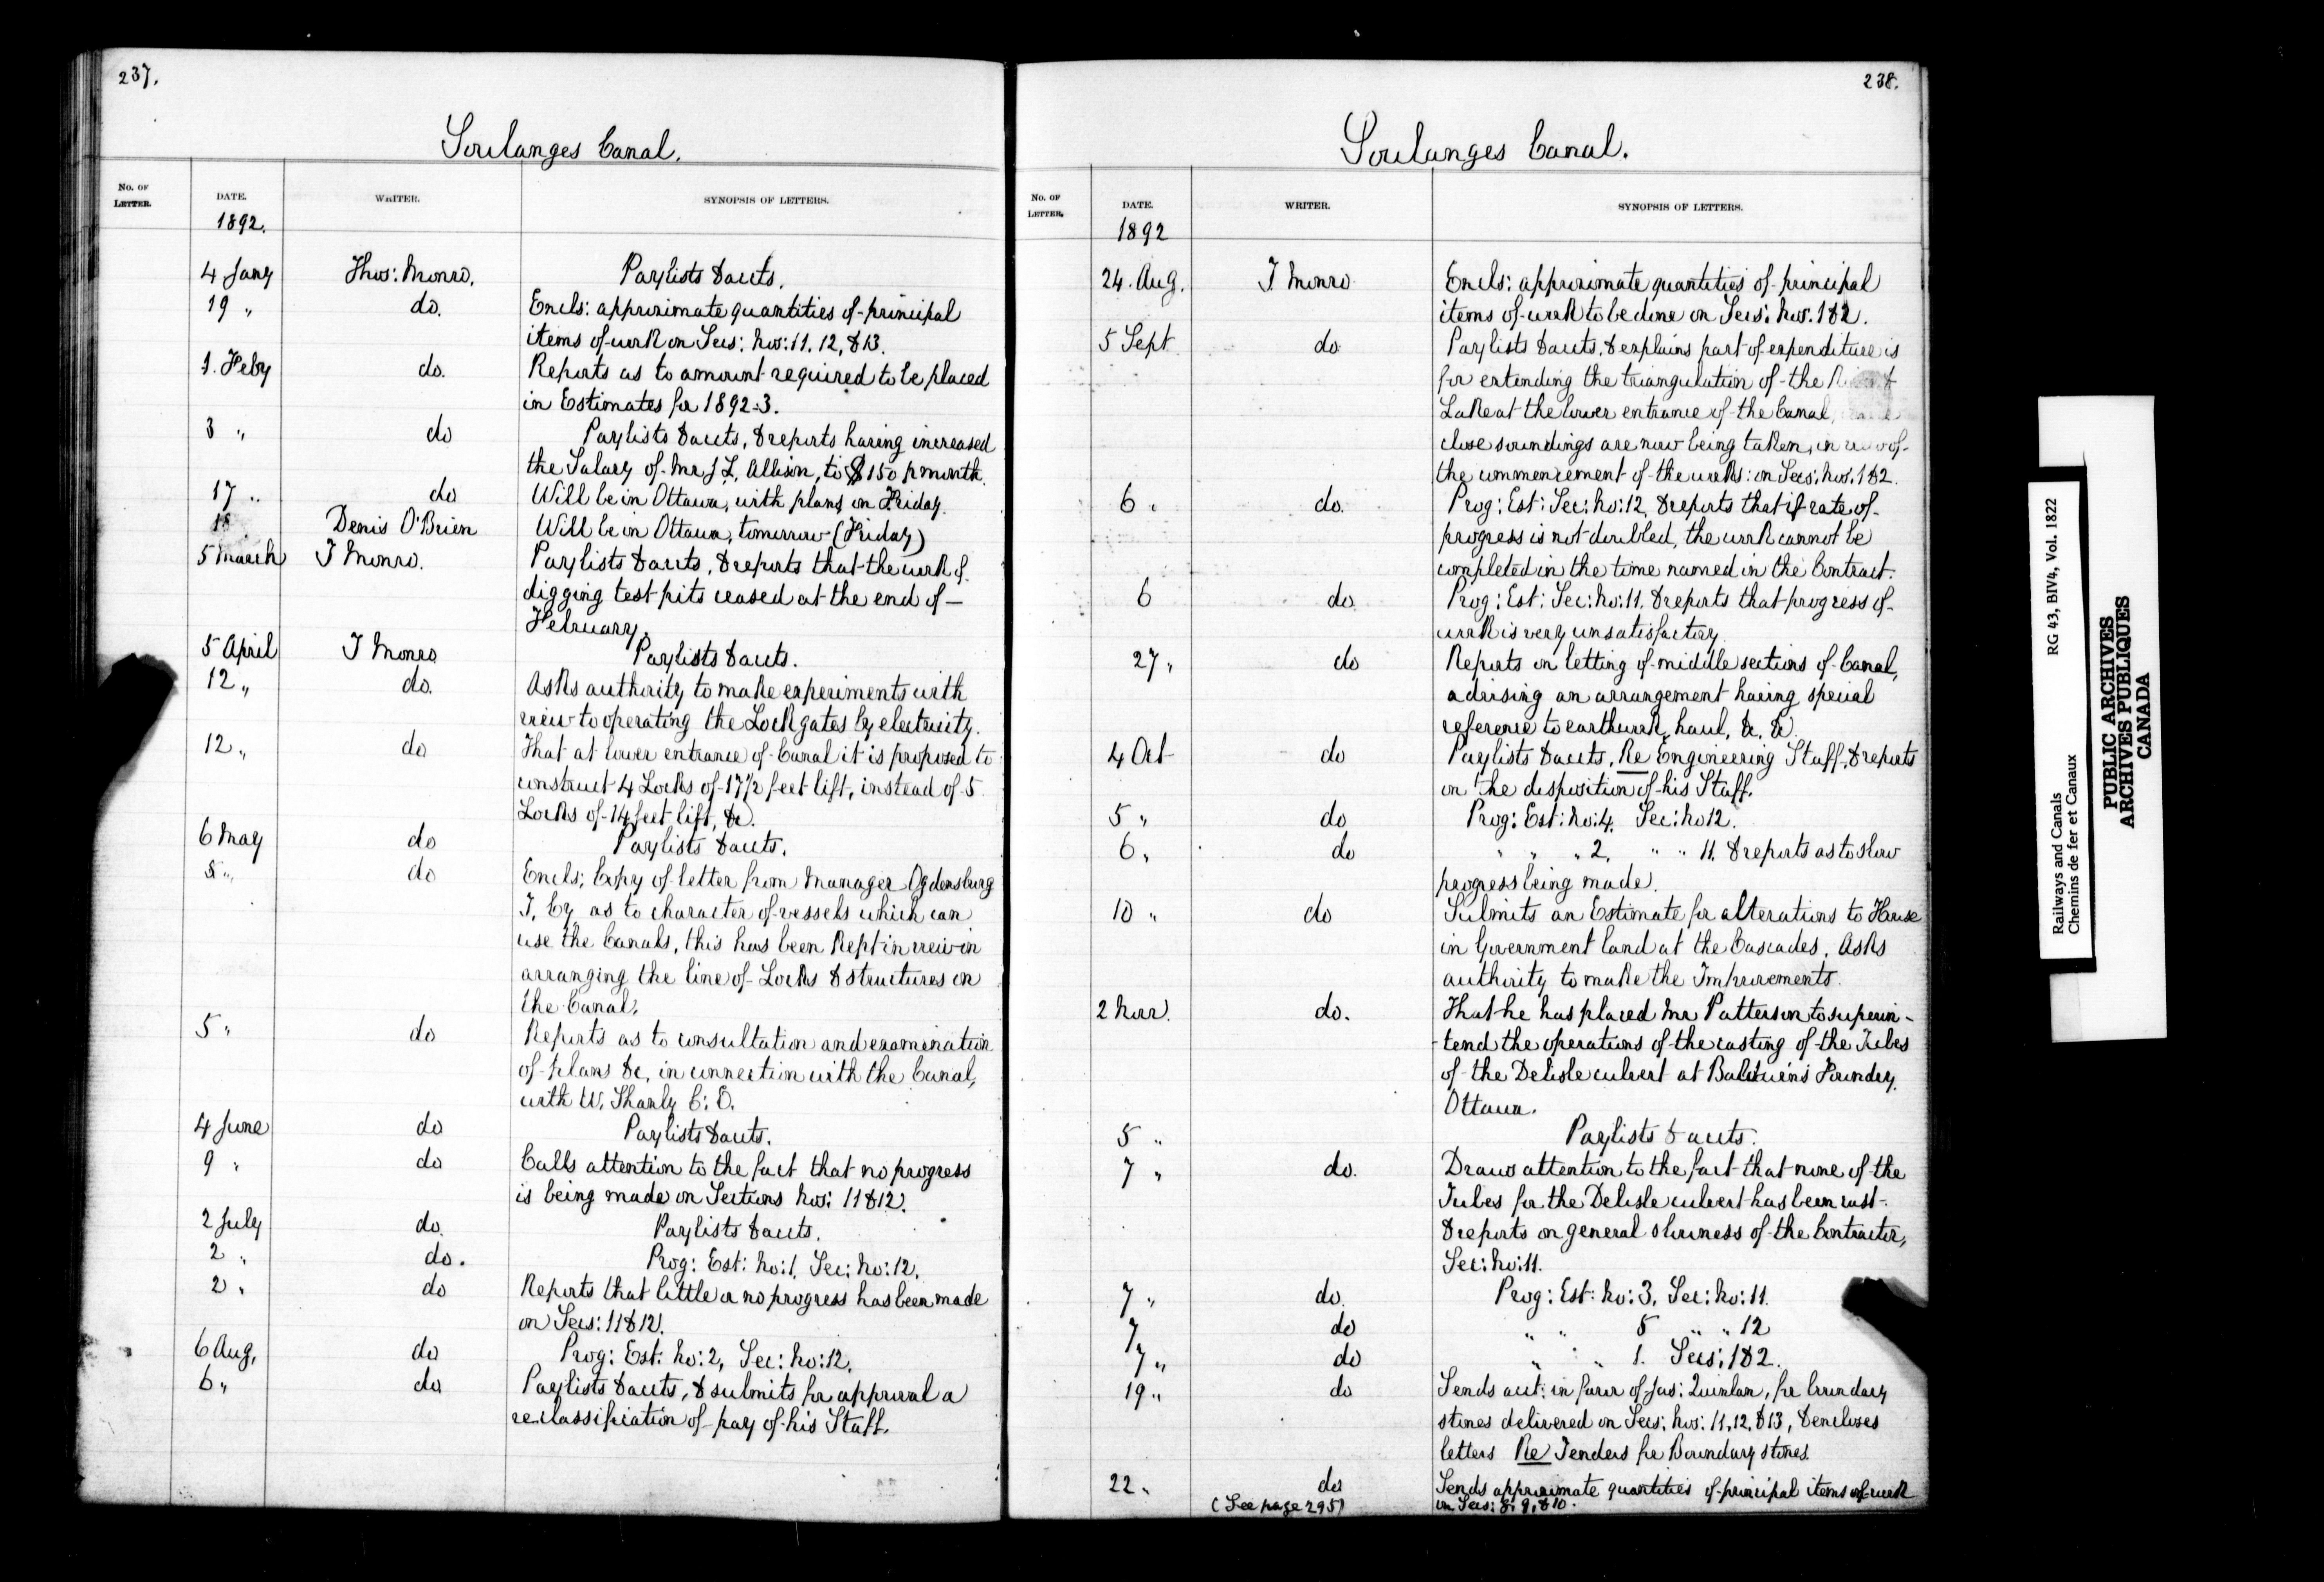 237.
Soulanges Canal.
No. OF LETTER. DATE. WRITER. SYNOPSIS OF LETTERS.
1892.
4 Jany Thos: Monro. Paylists & accts.
19 " do. Encls: approximate quantities of principal
items of work on Secs: Nos: 11, 12, & 13.
1. Feby do. Reports as to amount required to be placed
in Estimates for 1892-3.
3 " do Paylists & accts, & reports having increased
the Salary of Mr J L. Allison, to $150 p month.
17 " do Will be in Ottawa, with plans on Friday.
Denis O'Brien Will be in Ottawa, tomorrow (Friday)
5 March T Monro. Paylists & accts, & reports that the work of
digging test pits ceased at the end of —
February.
5 April T Monro Paylists & accts.
12 " do. Asks authority to make experiments with
view to operating the Lock gates by electricity.
12 " do That at lower entrance of Canal it is proposed to
construct 4 Locks of 17½ feet lift, instead of 5
Locks of 14 feet lift, &c.
6 May do Paylists & accts.
5 " do Encls; Copy of letter from Manager Ogdensburg
T. Cy as to character of vessels which can
use the Canals, this has been kept in view in
arranging the line of Locks & structures on
the Canal.
5 " do Reports as to consultation and examination
of plans &c, in connection with the Canal,
with W. Shanly C: E.
4 June do Paylists & accts.
9 " do Calls attention to the fact that no progress
is being made on Sections Nos: 11 & 12.
2 July do. Paylists & accts.
2 " do. Prog: Est: No: 1, Sec: No: 12.
2 " do Reports that little or no progress has been made
on Secs: 11 & 12.
6 Aug. do Prog: Est: No: 2, Sec: No: 12.
6 " do Paylists & accts, & submits for approval a
reclassification of pay of his Staff.
238.
Soulanges Canal.
No. OF LETTER. DATE. WRITER. SYNOPSIS OF LETTERS.
1892
24 Aug. T Monro Encls: approximate quantities of principal
items of work to be done on Secs: Nos. 1 & 2.
5 Sept do Paylists & accts, & explains part of expenditure is
for extending the triangulation of the
Lake at the lower entrance of the Canal,
close soundings are now being taken, in view of
the commencement of the works: on Secs: Nos. 1 & 2.
6 " do. Prog: Est: Sec: No: 12, & reports that if rate of
progress is not doubled, the work cannot be
completed in the time named in the Contract.
6 do Prog: Est: Sec: No: 11. & reports that progress of
work is very unsatisfactory
27 " do Reports on letting of middle sections of Canal,
advising an arrangement having special
reference to earthwork, haul, &c, &c.
4 Oct do Paylists & accts, Re Engineering Staff, & reports
on the disposition of his Staff.
5 " do Prog: Est: No: 4, Sec: No 12.
6 " do " " " 2, " " 11. & reports as to slow
progress being made.
10 " do Submits an Estimate for alterations to House
in Government land at the Cascades, Asks
authority to make the Improvements.
2 Nov. do. That he has placed Mr Patterson to superin-
-tend the operations of the casting of the Tubes
of the Delisle culvert at Baldwin's Foundry,
Ottawa.
5 " Paylists & accts.
7 " do. Draws attention to the fact that none of the
Tubes for the Delisle culvert has been cast.
& reports on general slowness of the Contractor,
Sec: No: 11.
7 " do. Prog: Est: No: 3, Sec: No: 11.
7 " do " " 5 " " 12
7 " do " " 1. Secs: 1 & 2.
19 " do Sends acct: in favor of Jas: Quinlan, for boundary
stones delivered on Secs: Nos: 11, 12, & 13, & encloses
letters Re Tenders for Boundary stones.
22 " do Sends approximate quantities of principal items of work
on Secs: 8, 9, & 10.
(See page 295)
RG 43, BIV4, Vol. 1822
Railways and Canals
Chemins de fer et Canaux
PUBLIC ARCHIVES
ARCHIVES PUBLIQUES
CANADA